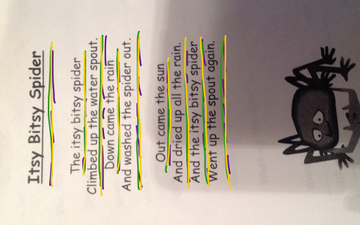 Itsy Bitsy Spider
The itsy bitsy spider
Climbed up the water spout.
Down came the rain
And washed the spider out.
Out came the sun
And dried up all the rain,
And the itsy bitsy spider
Went up the spout again.